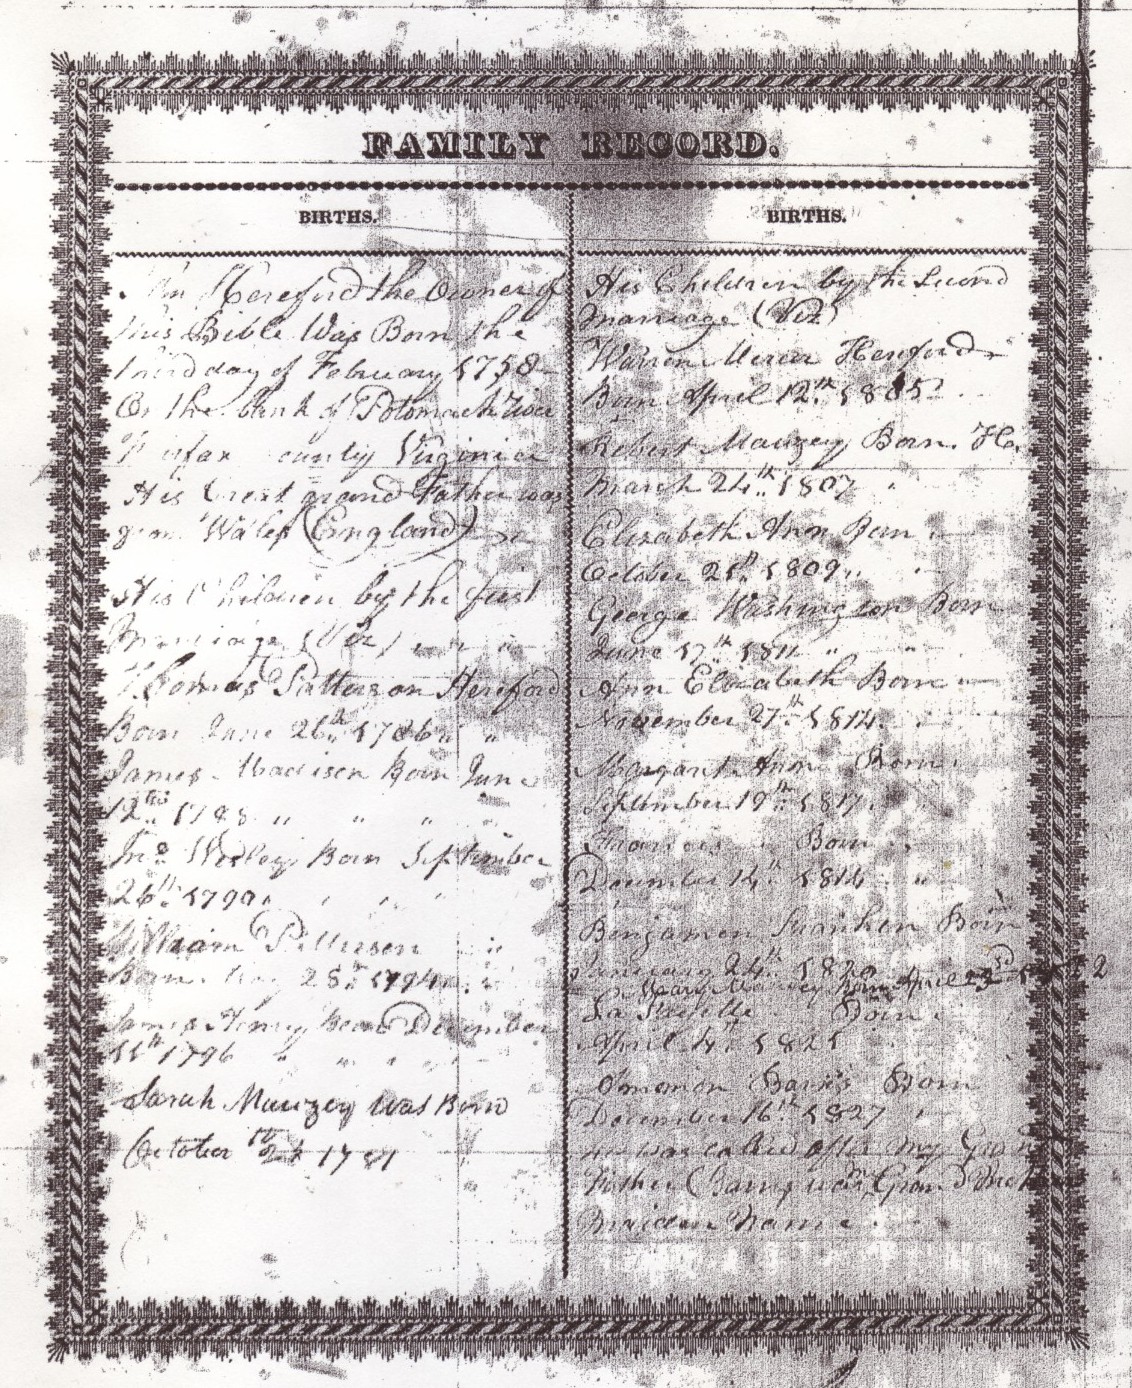 FAMILY RECORD.
BIRTHS.
Hereford the Owner of
this Bible Was Born the
third day of February 1758
On the bank of Potomack
county Virginia
His Great grand Father was
from Wales (England)
His Children by the first
Marriage (Viz)
Thomas Patterson Hereford
Born June 26th 1786
James Madison Born June
12th 1788
Jno. Wesley Born September
26th 1790
William Patterson
Born May 28th 1794
James Henry Born December
11th 1796
Sarah Mauzey Was Born
October 1781
BIRTHS.
His Children by the Second
marriage (Viz)
Warren Hereford
Born April 12th 1805
Robert Mauzey Born
March 24th 1807
Elizabeth Ann Born
October 21st 1809
George Washington Born
June 17th 1811
Ann Elizabeth Born
November 27th 1814
Margaret Ann Born
September 19th 1817
Frances Born
December 14th 1814
Benjamin Born
January 24th 1820
Mary Mauzey Born April 23rd
La Born
April 4th 1825
Born
December 16th 1827
he was called after my Gran
Father ( was Grand
maiden Name